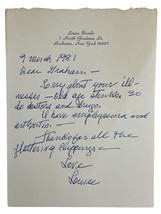 Louise Brooks
7 North Goodman St.
Rochester, New York 14607
9 March 1981
Dear Graham -
Sorry about your ill-
nesses - old age stinks. So
do doctors and drugs.
I have emphysema and
arthritis. -
Thanks for all the
flattering clippings -
Love
Louise